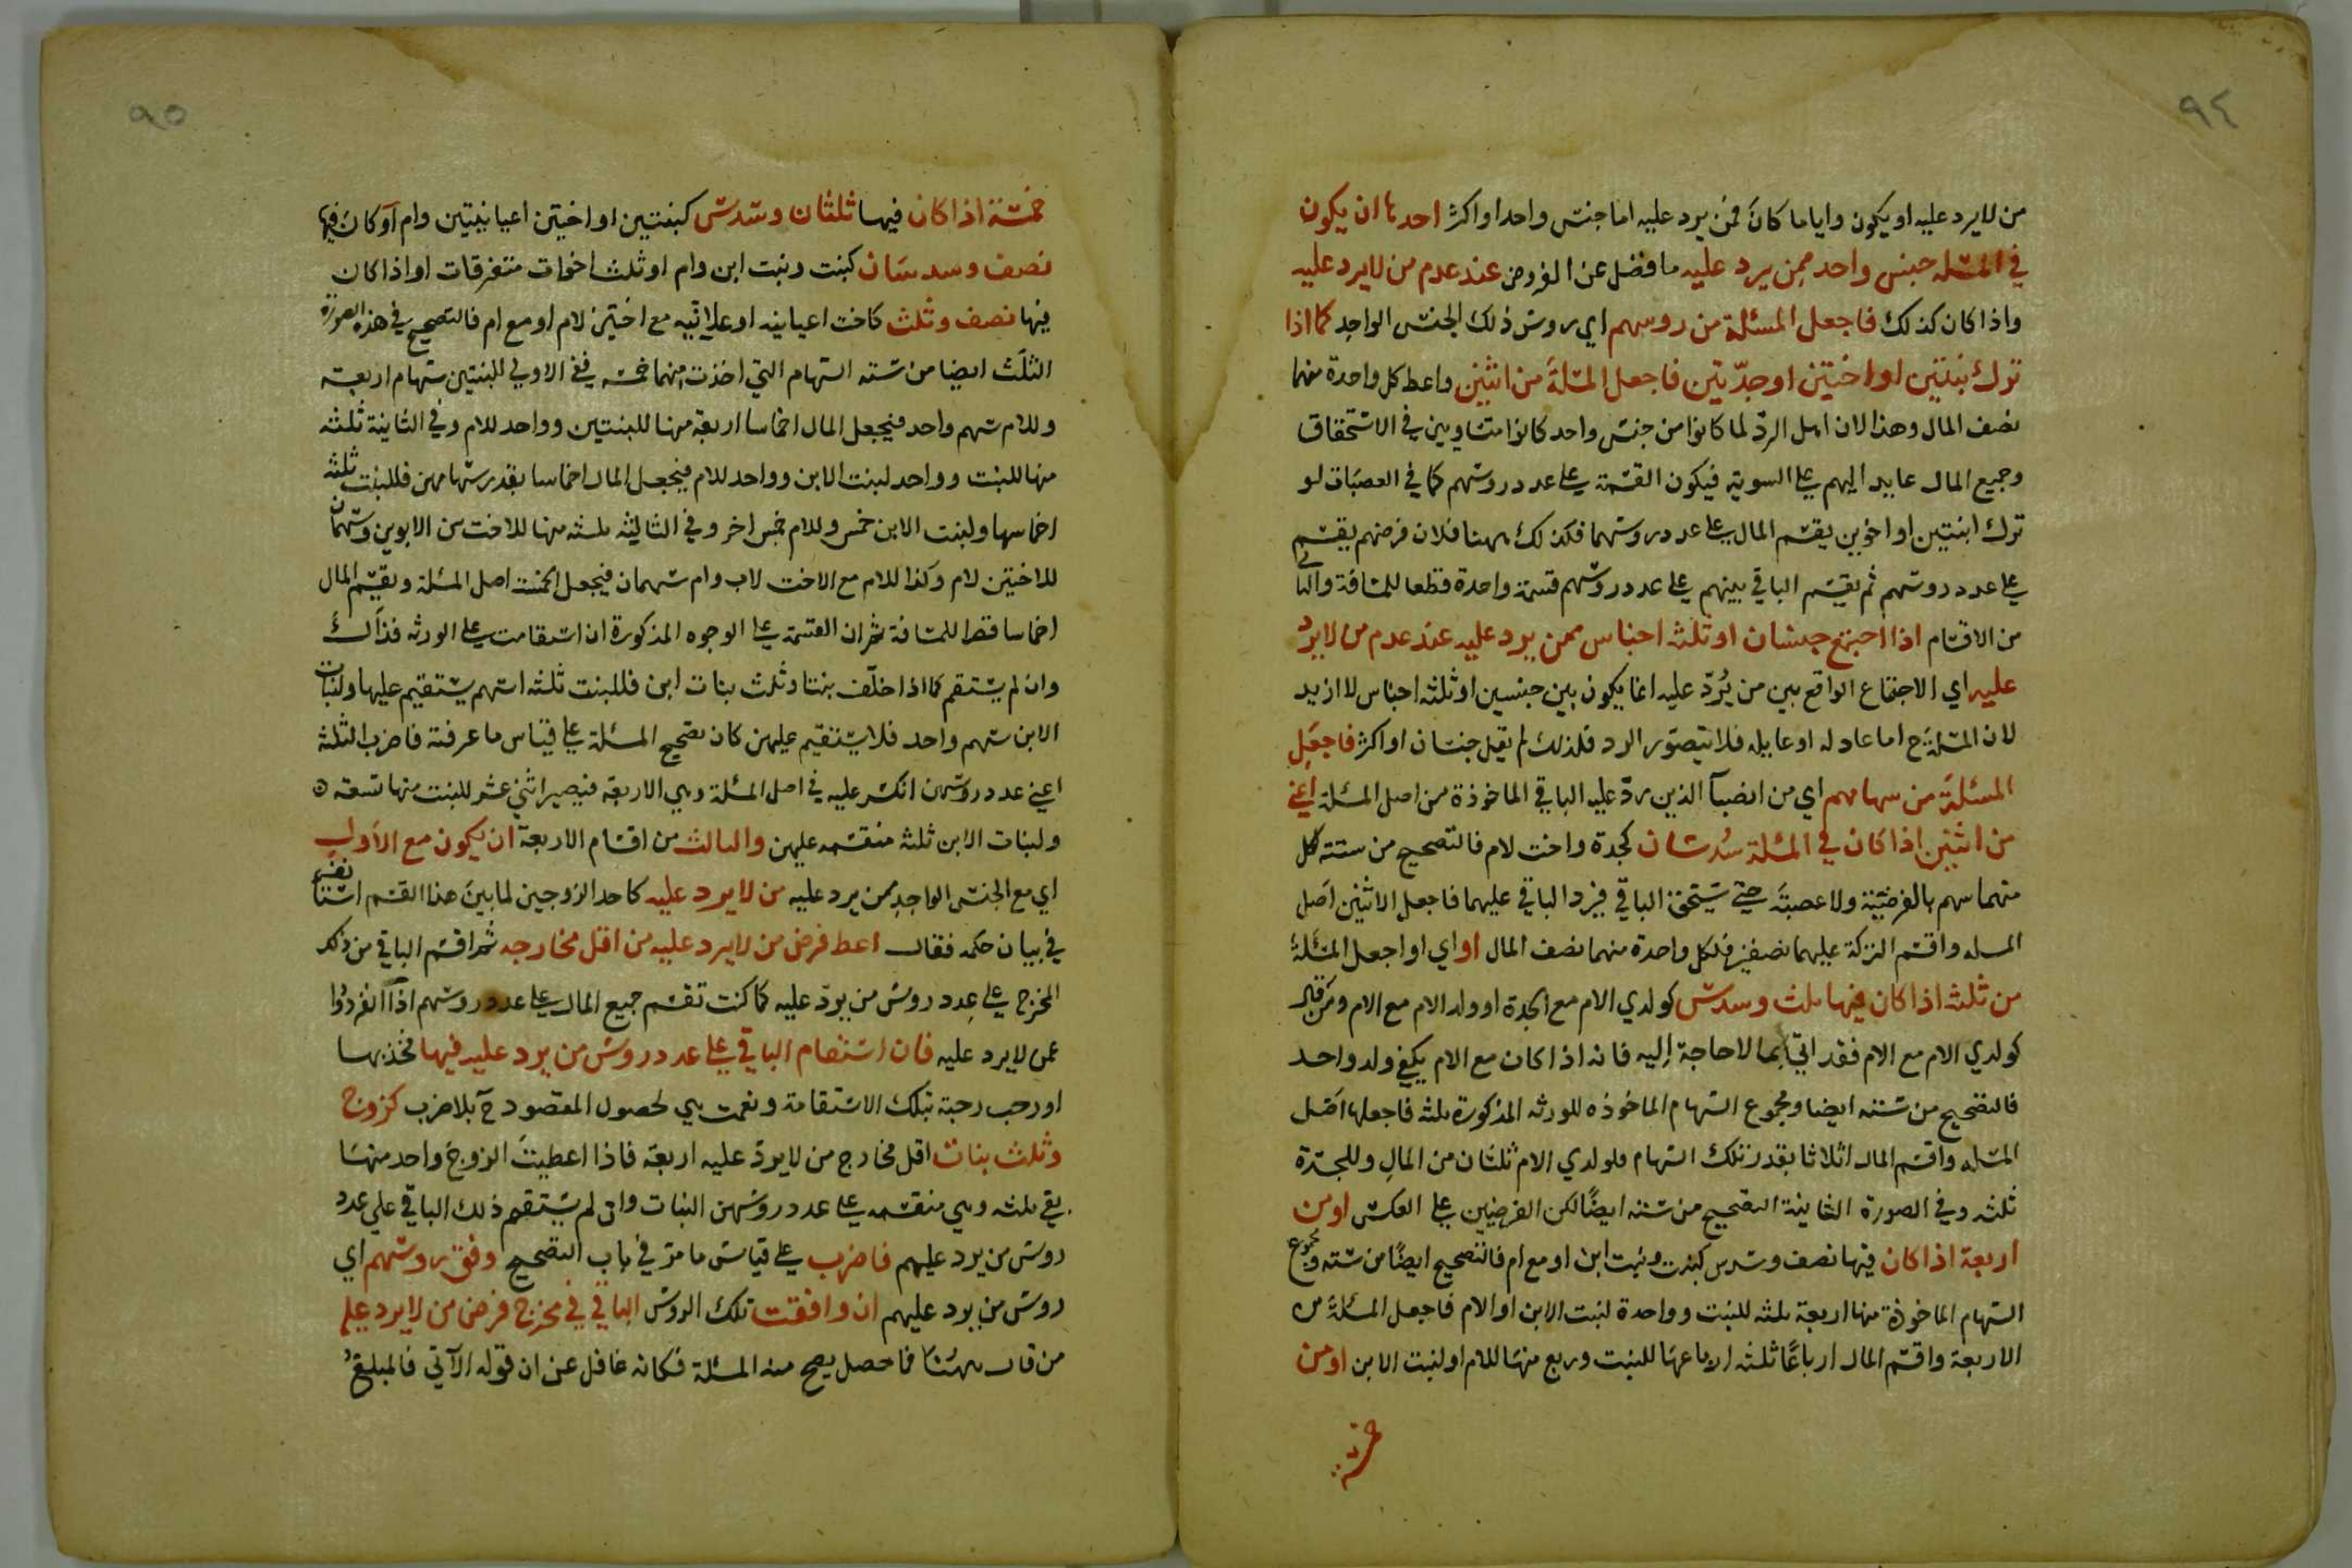 ٩٤
من لا يرد عليه او يكون واياما كان فمن يرد عليه اما جنس واحد او اكثر احدها ان يكون
في المسئله جنس واحد ممن يرد عليه ما فضل عن الفروض عند عدم من لا يرد عليه
واذا كان كذلك فاجعل المسئلة من روسهم اي روس ذلك الجنس الواحد كما اذا
ترك بنتين او اختين او جدّتين فاجعل المسئلة من اثنين واعط كل واحدة منهما
نصف المال وهذا لان اهل الردّ لما كانوا من جنس واحد كانوا متساويين في الاستحقاق
وجميع المال عايد اليهم على السوية فيكون القسمة على عدد روسهم كما في العصبات لو
ترك ابنتين او اخوين يقسم المال على عدد روسهما فكذلك ههنا فلان فرضهم يقسم
على عدد روسهم ثم يقسم الباقي بينهم على عدد روسهم قسمة واحدة قطعا للمسافة والثاني
من الاقسام اذا اجتمع جنسان او ثلثه اجناس ممن يرد عليه عند عدم من لا يردّ
عليه اي الاجتماع الواقع بين من يُردّ عليه انما يكون بين جنسين او ثلثه اجناس لا ازيد
لان المسئلة ح اما عادله او عايله فلا يتصوّر الرد فلذلك لم يقل جنسان او اكثر فاجعل
المسئلة من سهامهم اي من انصبآ الذين ردّ عليه الباقي الماخوذة من اصل المسئلة اعني
من اثنين اذا كان في المسئلة سُدسان كجدة واخت لام فالتصحيح من ستته لكل
منهما سهم بالفرضيّة ولا عصبة حتى يستحق الباقي فيرد الباقي عليهما فاجعل الاثنين اصل
المسله واقسم التركة عليهما نصفين فلكل واحدة منهما نصف المال او اي او اجعل المسئلة
من ثلثه اذا كان فيها ثلث وسدس كولدي الام مع الجدة او ولد الام مع الام ومن قال
كولدي الام مع الام فقد اتى بما لا حاجة إليه فانه اذا كان مع الام يكفي ولد واحد
فالتصحيح من ستته ايضا ومجموع السهام الماخوذه للورثه المذكورة ثلثه فاجعلها اصل
المسله واقسم المال اثلاثا بقدر تلك السهام فلولدي الام ثلثان من المال وللجدّة
ثلثه وفي الصورة الثانية التصحيح من ستته ايضًا لكن الفرضين على العكس او من
اربعة اذا كان فيها نصف وسدس كبنت وبنت ابن او مع ام فالتصحيح ايضًا من سته ومجموع
السهام الماخوذة منها اربعة ثلثه للبنت وواحدة لبنت الابن او الام فاجعل المسئلة من
الاربعة واقسم المال ارباعًا ثلثه ارباعها للبنت وربع منها للام او لبنت الابن او من
خمسة
٩٥
خمسة اذا كان فيها ثلثان وسدس كبنتين او اختين اعيانيتين وام او كان فيها
نصف وسدسان كبنت وبنت ابن وام او ثلث اخوات متفرقات او اذا كان
فيها نصف وثلث كاخت اعيانيه او علاتيه مع اختين لام او مع ام فالتصحيح في هذه الصورة
الثلث ايضا من سته السهام التي اخذت منها خمسه ففي الاولى للبنتين سهام اربعة
وللام سهم واحد فيجعل المال اخماسا اربعة منها للبنتين وواحد للام وفي الثانية ثلثه
منها للبنت وواحد لبنت الابن وواحد للام فيجعل المال اخماسا بقدر سهامهن فللبنت ثلثه
اخماسها ولبنت الابن خمس وللام خمس اخر وفي الثالثه ثلثه منها للاخت من الابوين وسهمان
للاختين لام وكذا للام مع الاخت لاب وام سهمان فيجعل الخمسة اصل المسئلة ويقسم المال
اخماسا قصرا للمسافة ثم ان القسمة على الوجوه المذكورة ان استقامت على الورثه فذالك
وان لم يستقم كما اذا خلّف بنتا وثلث بنات ابن فللبنت ثلثه اسهم يستقيم عليها ولبنات
الابن سهم واحد فلا يستقيم عليهن كان تصحيح المسئلة على قياس ما عرفته فاضرب الثلثه
اعني عدد روس من انكسر عليه في اصل المسئلة وهي الاربعه فيصير اثني عشر للبنت منها تسعه
ولبنات الابن ثلثه منقسمه عليهن والثالث من اقسام الاربعة ان يكون مع الأول
اي مع الجنس الواحد ممن يرد عليه من لا يرد عليه كاحد الزوجين لما بين هذا القسم استانف
في بيان حكمه فقال اعط فرض من لا يرد عليه من اقل مخارجه ثم اقسم الباقي من ذلك
المخرج على عدد روس من يردّ عليه كما كنت تقسم جميع المال على عدد روسهم اذا انفردوا
عمن لا يرد عليه فان استقام الباقي على عدد روس من يرد عليه فيها فخذ بها
او رحب رحبة بتلك الاستقامة ونعمت هي لحصول المقصود ح بلا ضرب كزوج
وثلث بنات اقل مخارج من لا يردّ عليه اربعة فاذا اعطيت الزوج واحد منها
بقي ثلثه وهي منقسمه على عدد روسهن البنات وان لم يستقم ذلك الباقي على عدد
روس من يرد عليهم فاضرب على قياس ما مر في باب التصحيح وفق روسهم اي
روس من يرد عليهم ان وافقت تلك الروس الباقي في مخرج فرض من لا يرد عليه
من قال ههنا فما حصل يصح منه المسئلة فكانه غافل عن ان قوله الآتي فالمبلغ